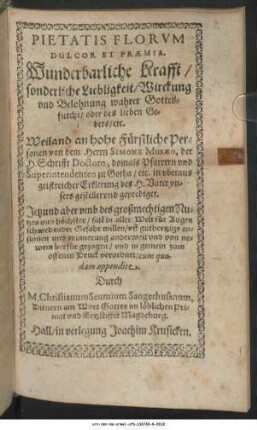 PIETATIS FLORVM
DULCOR ET PRÆMIA.
Wunderbarliche Krafft /
sonderliche Liebligkeit / Wirckung
vnd Belohnung wahrer Gottes-
furcht / oder des lieben Ge-
bets / etc.
Weiland an hohe Fürstliche Per-
sonen von dem Herrn der
H. Schrifft Doctorn, domals Pfarrern vnd
Superintendenten zu Gotha / etc. in vberaus
geistreicher Erklerung des H. Vater vn-
sers gestellet vnd geprediget.
Jetzund aber vmb des grossmechtigen Nu-
tzen vnd höchster / fast in aller Welt für Augen
schwebender Gefahr willen / auff gutherziger an-
vnd erinnerung anderweit vnd von ne-
wem herfür gezogen / vnd in gemein zum
offnen Druck verordnet / cum qua-
dam appendice.
Durch
M. Christianum Sangerhusanum,
Dienern am Wort Gottes im löblichen Pri-
mat vnd Ertzstifft Magdeburg.
Hall / in verlegung Joachim Krusicken.